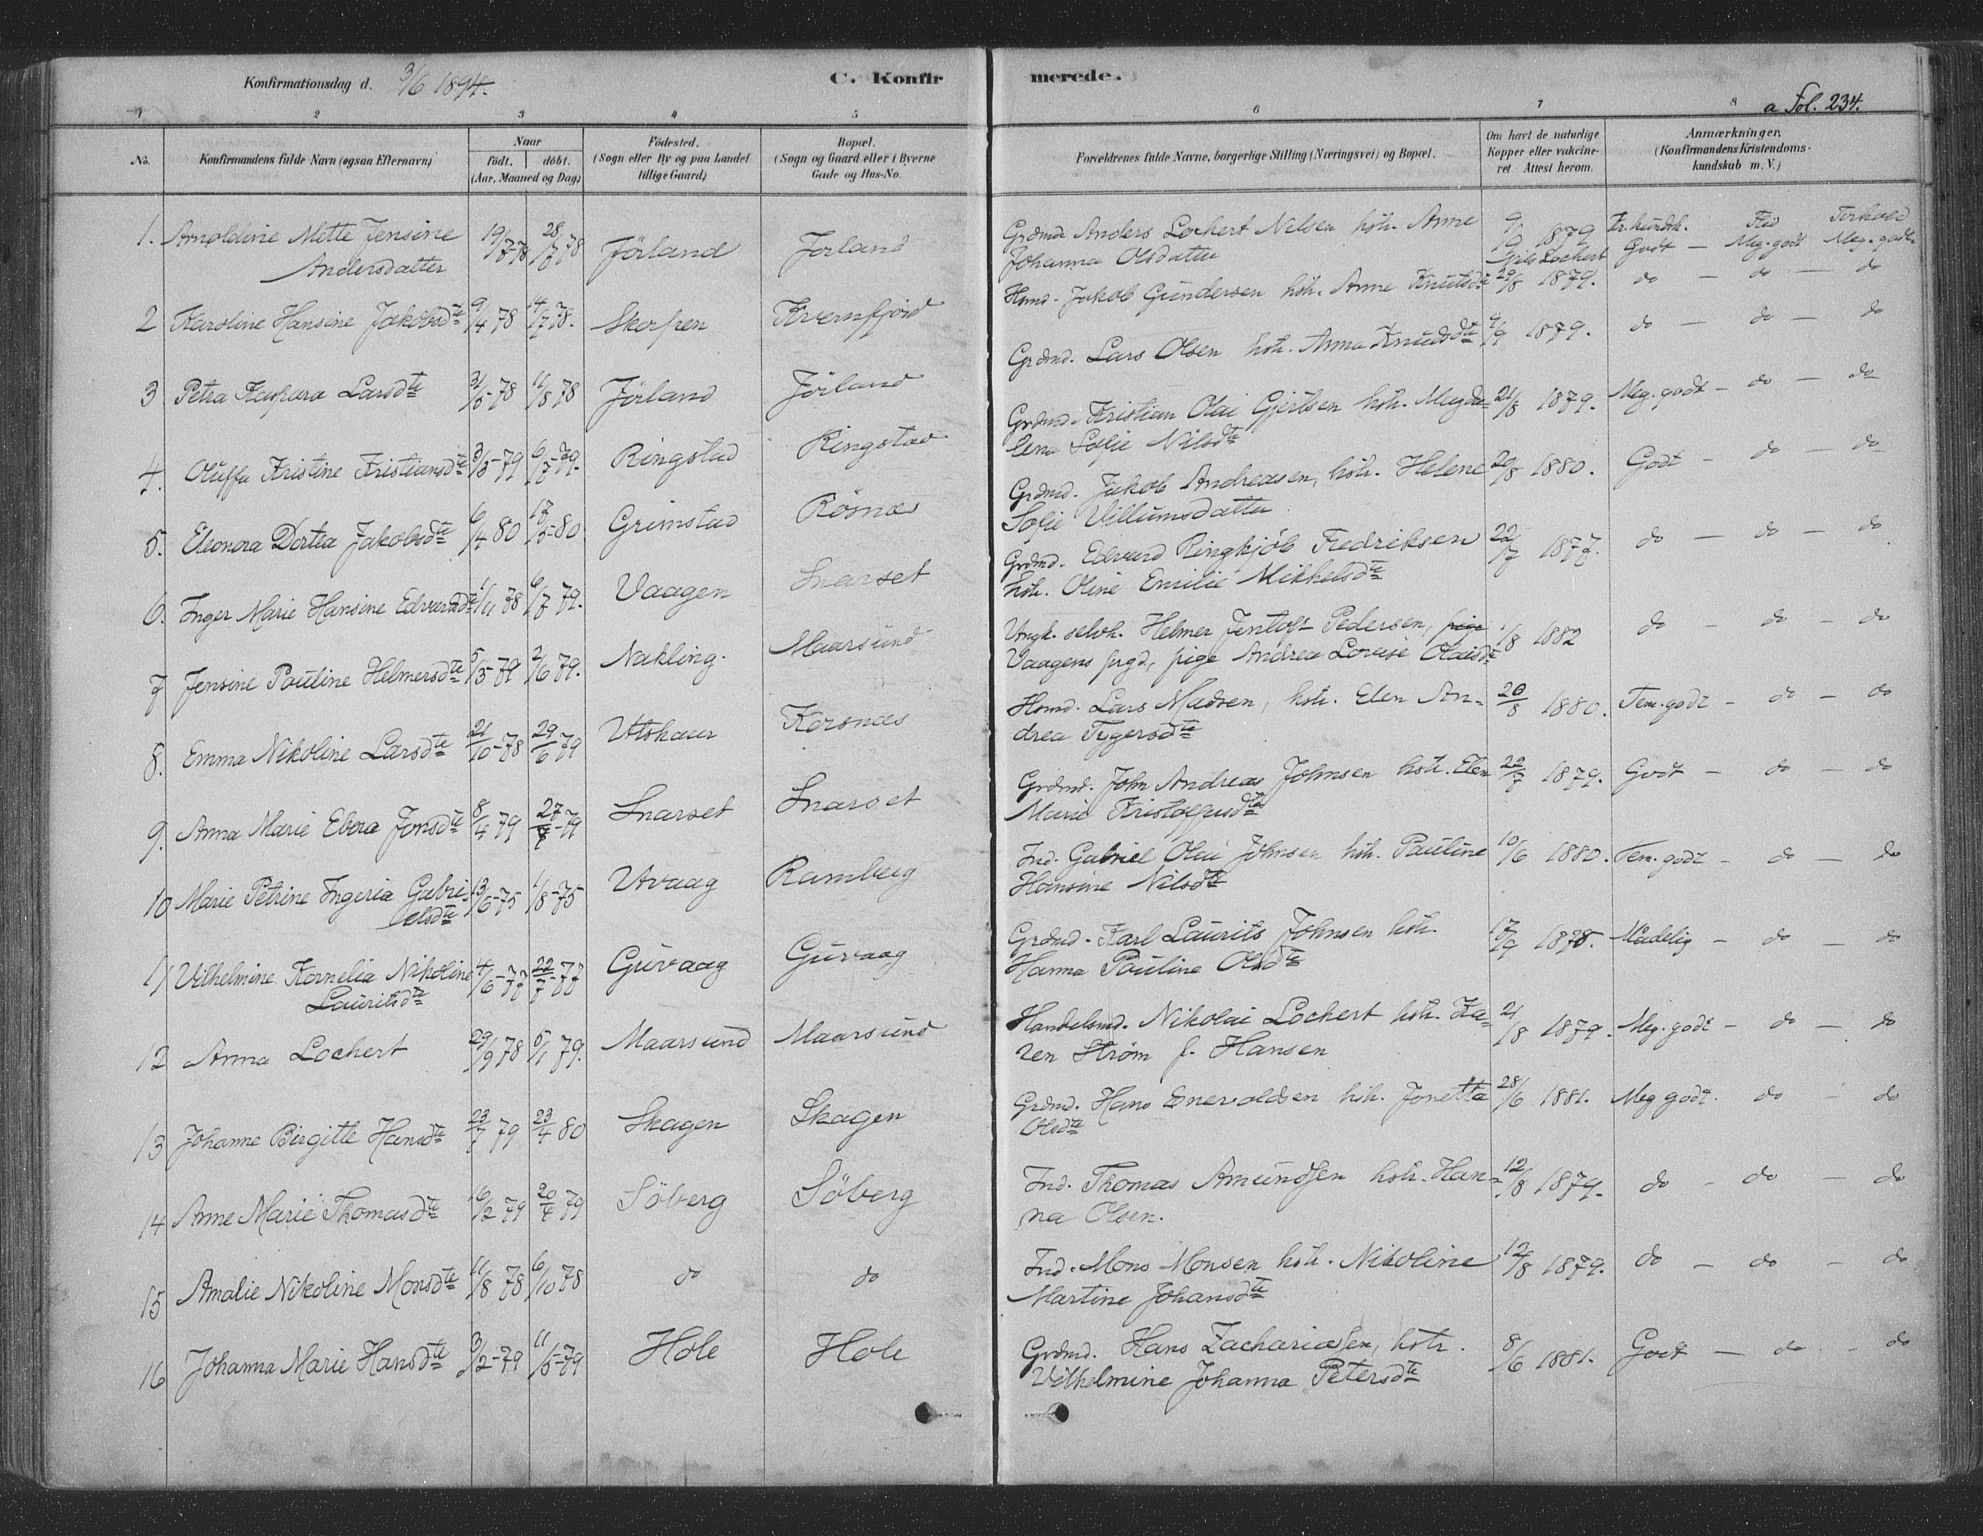 Konfirmationsdag d. 3/6 1894.
C. Konfirmerede.
a Fol. 234.
1 2 3 4 5 6 7 8
No.
Konfirmandens fulde Navn (ogsaa Efternavn)
Naar
födt. döbt.
(Aar, Maaned og Dag)
Födested.
(Sogn eller By og paa Landet
tillige Gaard)
Bopæl.
(Sogn og Gaard eller i Byerne
Gade og Hus-No.
Forældrenes fulde Navne, borgerlige Stilling (Næringsvei) og Bopæl.
Om havt de naturlige
Kopper eller vakcine-
ret Attest herom.
Anmærkninger.
(Konfirmandens Kristendoms-
kundskab m. V.)
1. Arnoldine Mette Jensine 19/7-78 28/7 78 Jörland Jorland Grdmd Anders Lochert Nelsen hstr. Anne 9/9 1879 Kr. kundsk. Flid Forhold
Andersdatter Johanna Olsdatter Nils Lochert Godt — Meg. godt Meg. godt
2 Karoline Hansine Jakobsdte 9/4 78 14/7 78. Skorpen Kvernfjord Hmd. Jakob Gundersen hstr. Anne Knutsdte 29/8 1879. do — do — do
3 Petra Kaspara Larsdte 31/5-78 11/8 78 Jörland Jörland Grdmd. Lars Olsen hstr. Anna Knudsdte 4/9 1879. do — do — do
4. Oluffa Kristine Kristiansdte 3/5-79 6/7-79. Ringstad Ringstad Grdmd. Kristian Olai Gjertsen hstr. Magda- 21/8 1879. Meg. godt — do — do
lena Sofie Nilsdte
5. Eleonora Dortea Jakobsdte 6/4 80 17/5-80 Grimstad Rösnes Grdmd. Jakob Andreasen, hstr. Helene 20/8 1880. Godt — do — do
Sofie Villumsdatter
6. Inger Marie Hansine Edvardsdte 1/11 78 6/7 79. Vaagen Snarset Grdmd. Edvard Ringkjöb Fredriksen 22/7 1877. do — do — do
hstr. Oline Emilie Mikkelsdte
7 Jensine Pauline Helmersdte 5/5 79 2/6 79. Nakling. Maarsund Ungk. selvh. Helmer Jentoft Pedersen, pige 1/8 1882 do — do — do
Vaagens prgd, pige Andrea Lovise Olaisdte
8. Emma Nikoline Larsdte 21/10-78 29/6 79 Utskaar Korsnæs Hmd. Lars Madsen, hstr. Elen An- 20/8 1880. Tem. godt — do — do
drea Tygersdte
9. Anna Marie Ebora Jonsdte 8/4 79 27/7-79 Snarset Snarset Grdmd. John Andreas Johnsen hstr. Elen 22/7 1879. Godt — do — do
Marie Kristoffersdte
10 Marie Petrine Ingeria Gabri- 13/6-75 1/8-75 Utvaag Ramberg Ind. Gabriel Olai Johnsen hstr. Pauline 10/6 1880. Tem. godt — do — do
elsdte Hansine Nilsdte
11 Vilhelmine Kornelia Nikoline 4/6-77 22/7-77 Guvaag Guvaag Grdmd. Karl Laurits Johnsen hstr. 17/9 1878. Maadelig — do — do
Lauritsdte Hanna Pauline Olsdte
12 Anna Lochert 29/9 78 5/1 79. Maarsund Maarsund Handelsmd. Nikolai Lochert hstr. Ka- 21/8 1879. Meg. godt — do — do
ren Ström f. Hansen
13 Johanne Birgitte Hansdte 23/7 79 23/4 80 Skagen Skagen Grdmd. Hans Enevoldsen hstr. Jonetta 28/6 1881. Meg godt. do — do
Olsdte
14 Anne Marie Thomasdte 16/2 79 20/4 79 Söberg Söberg Ind. Thomas Amundsen hstr. Han- 12/8 1879. do — do — do
na Olsen.
15 Amalie Nikoline Monsdte 11/8 78 6/10 78 do do Ind. Mons Monsen hstr. Nikoline 12/8 1879. do — do — do
Martine Johansdte
16 Johanna Marie Hansdte 3/2-79 11/5-79 Hole Hole Grdmd. Hans Zachariassen, hstr. 8/6 1881. Godt — do. — do
Vilhelmine Johanna Petersdte